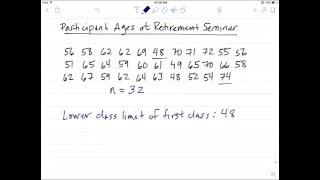 Participant Ages at Retirement Seminar
56 58 62 62 69 48 70 71 72 55 56
51 65 64 59 60 61 49 65 70 66 58
62 67 59 62 64 63 48 52 54 74
n = 32
Lower class limit of first class : 48